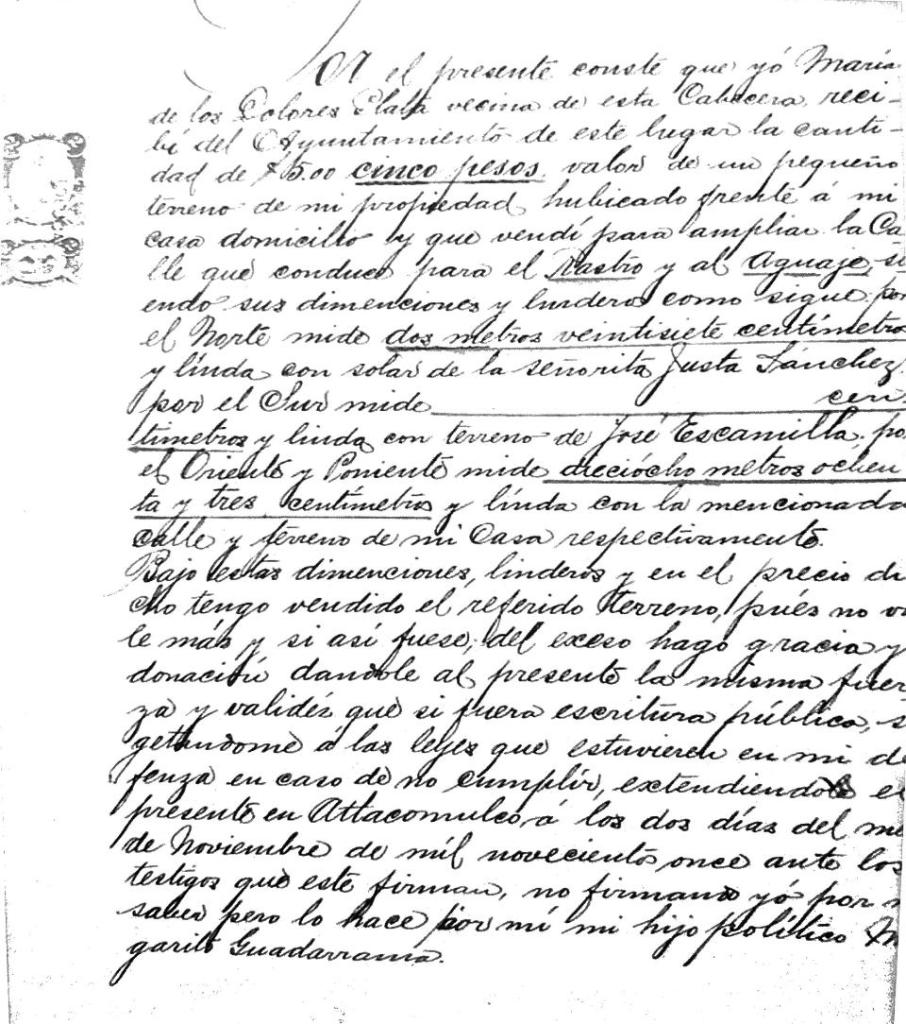 el presente conste que yó María
de los Dolores Plata vecina de esta Cabecera, reci-
bí del Ayuntamiento de este lugar la canti-
dad de $5.00 cinco pesos, valor de un pequeño
terreno de mi propiedad, hubicado frente á mi
casa domicilio y que vendí para ampliar la Ca
lle que conduce para el Rastro y al Aguaje, si
endo sus dimenciones y linderos como sigue: por
el Norte mide dos metros veintisiete centímetros
y línda con solar de la señorita Justa Sánchez,
por el Sur mide cen
tímetros y linda con terreno de José Escamilla, po
el Oriente y Poniente mide dieciócho metros ochen
ta y tres centímetros y línda con la mencionada
calle y terreno de mi Casa respectivamente.
Bajo estas dimenciones, linderos y en el precio di
cho tengo vendido el referido terreno, pués no va
le más y si así fuese, del exceso hago gracia y
donación dandole al presente la misma fuer
za y validéz que si fuera escritura pública, s
getandome á las leyes que estuvieren en mi de
fenza en caso de no cumplir, extendiendole el
presente en Atlacomulco, á los dos días del me
de Noviembre de mil novecientos once ante los
testigos que este firman, no firmando yó por n
saber pero lo hace por mí mi hijo político M
garito Guadarrama.